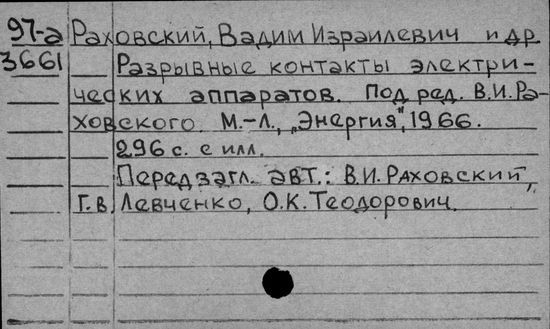 97-а Раховский, Вадим Израилевич и др.
3661 Разрывные контакты электри-
ческих аппаратов. Под ред. В.И.Ра-
ховского. М.-Л., „Энергия", 1966.
296 с. с илл.
Перед загл. авт.: В.И.Раховский,
Г.В. Левченко, О.К.Теодорович.